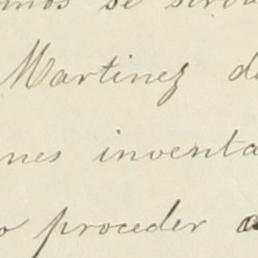 mos se sirva
Martinez d
nes inventa
o proceder a